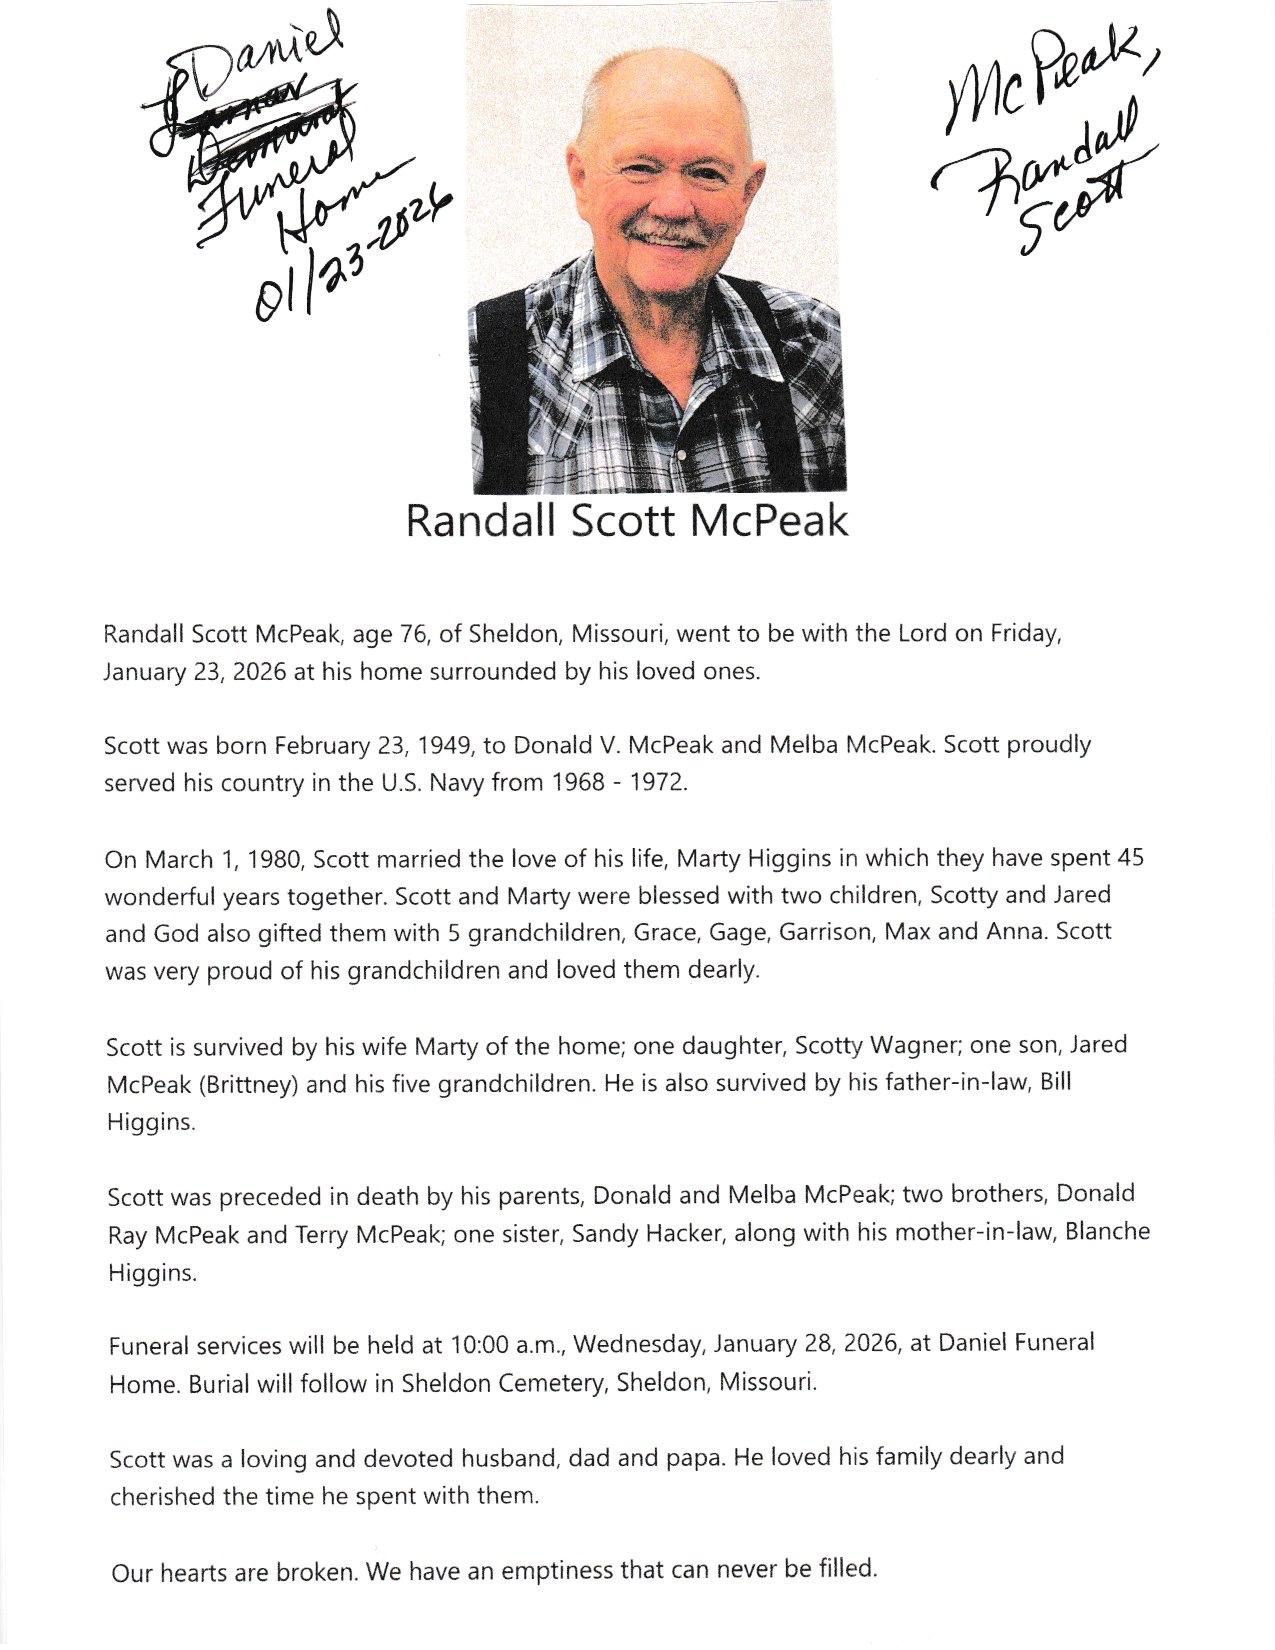 Daniel
Funeral
Home
01/23-2026
McPeak,
Randall
Scott
Randall Scott McPeak
Randall Scott McPeak, age 76, of Sheldon, Missouri, went to be with the Lord on Friday,
January 23, 2026 at his home surrounded by his loved ones.
Scott was born February 23, 1949, to Donald V. McPeak and Melba McPeak. Scott proudly
served his country in the U.S. Navy from 1968 - 1972.
On March 1, 1980, Scott married the love of his life, Marty Higgins in which they have spent 45
wonderful years together. Scott and Marty were blessed with two children, Scotty and Jared
and God also gifted them with 5 grandchildren, Grace, Gage, Garrison, Max and Anna. Scott
was very proud of his grandchildren and loved them dearly.
Scott is survived by his wife Marty of the home; one daughter, Scotty Wagner; one son, Jared
McPeak (Brittney) and his five grandchildren. He is also survived by his father-in-law, Bill
Higgins.
Scott was preceded in death by his parents, Donald and Melba McPeak; two brothers, Donald
Ray McPeak and Terry McPeak; one sister, Sandy Hacker, along with his mother-in-law, Blanche
Higgins.
Funeral services will be held at 10:00 a.m., Wednesday, January 28, 2026, at Daniel Funeral
Home. Burial will follow in Sheldon Cemetery, Sheldon, Missouri.
Scott was a loving and devoted husband, dad and papa. He loved his family dearly and
cherished the time he spent with them.
Our hearts are broken. We have an emptiness that can never be filled.